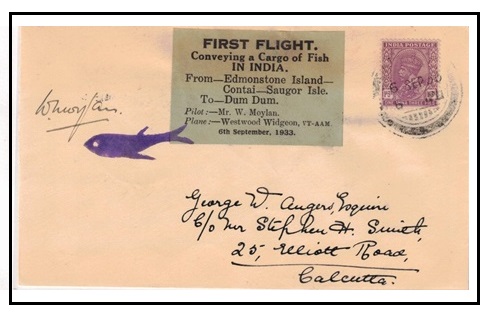 FIRST FLIGHT.
Conveying a Cargo of Fish
IN INDIA.
From—Edmonstone Island—
Contai—Saugor Isle.
To—Dum Dum.
Pilot:—Mr. W. Moylan.
Plane:—Westwood Widgeon, VT-AAM.
6th September, 1933.
INDIA POSTAGE
6 SEP
George W. Angers, Esquire
C/o Mr Stephen H. Smith,
25, Elliott Road,
Calcutta.